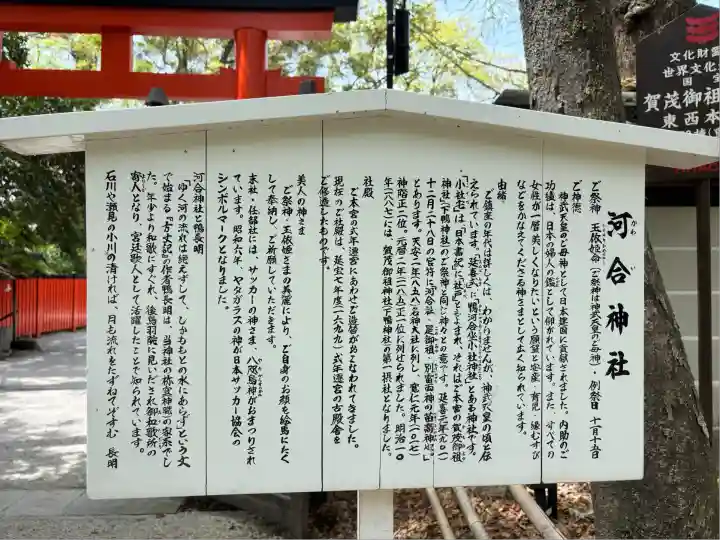 河合神社
かわ あい
ご祭神　玉依姫命（ご祭神は神武天皇のご母神）・例祭日　十一月十五日
ご神徳
神武天皇のご母神として日本建国に貢献されました。内助のご
功徳は、日本の婦人の鑑として仰がれています。また、すべての
女性が一層美しくなりたいという願望と安産・育児・縁むすび
などをかなえてくださる神さまとして広く知られています。
由緒
ご鎮座の年代は詳しくは、わかりませんが、神武天皇の頃と伝
えられています。「延喜式」に「鴨河合坐小社神社」とある神社です。
「小社宅」は「日本書紀」に「社戸」ともよまれ、それはご本宮の「賀茂御祖
神社」「下鴨神社」のご祭神と同じ神々との意です。延喜元年（九〇一）
十二月二十八日の官符に「河合社、是御祖、別雷両神の苗裔神也」
とあります。天安二年（八五八）名神大社に列し、寛仁元年（一〇一七）
神階正二位、元暦二年（一一八五）正一位に列せられました。明治一〇
年（一八七七）には、賀茂御祖神社（下鴨神社）の第一摂社となりました。
社殿
ご本宮の式年遷宮にあわせご造替がおこなわれてきました。
現在のご社殿は、延宝七年度（一六七九）式年遷宮の古殿舎を
ご修造したものです。
美人の神さま
ご祭神・玉依姫さまの美麗により、ご自身のお顔を絵馬にたく
して奉納し、ご祈願していただきます。
末社・任部社には、サッカーの神さま、八咫烏神がおまつりされ
ています。昭和六年、ヤタガラスの神が日本サッカー協会の
シンボルマークとなりました。
河合神社と鴨長明
「ゆく河の流れは絶えずして、しかももとの水にあらず」という文
で始まる『方丈記』の作者鴨長明は、当神社の禰宜神職の家系でし
た。年少より和歌にすぐれ、後鳥羽院に見いだされ御和歌所の
寄人となり、宮廷歌人として活躍したことで知られています。
石川や瀬見の小川の清ければ、月も流れをたずねてぞすむ　長明
文化財
世界文化
国
賀茂御祖
東西本